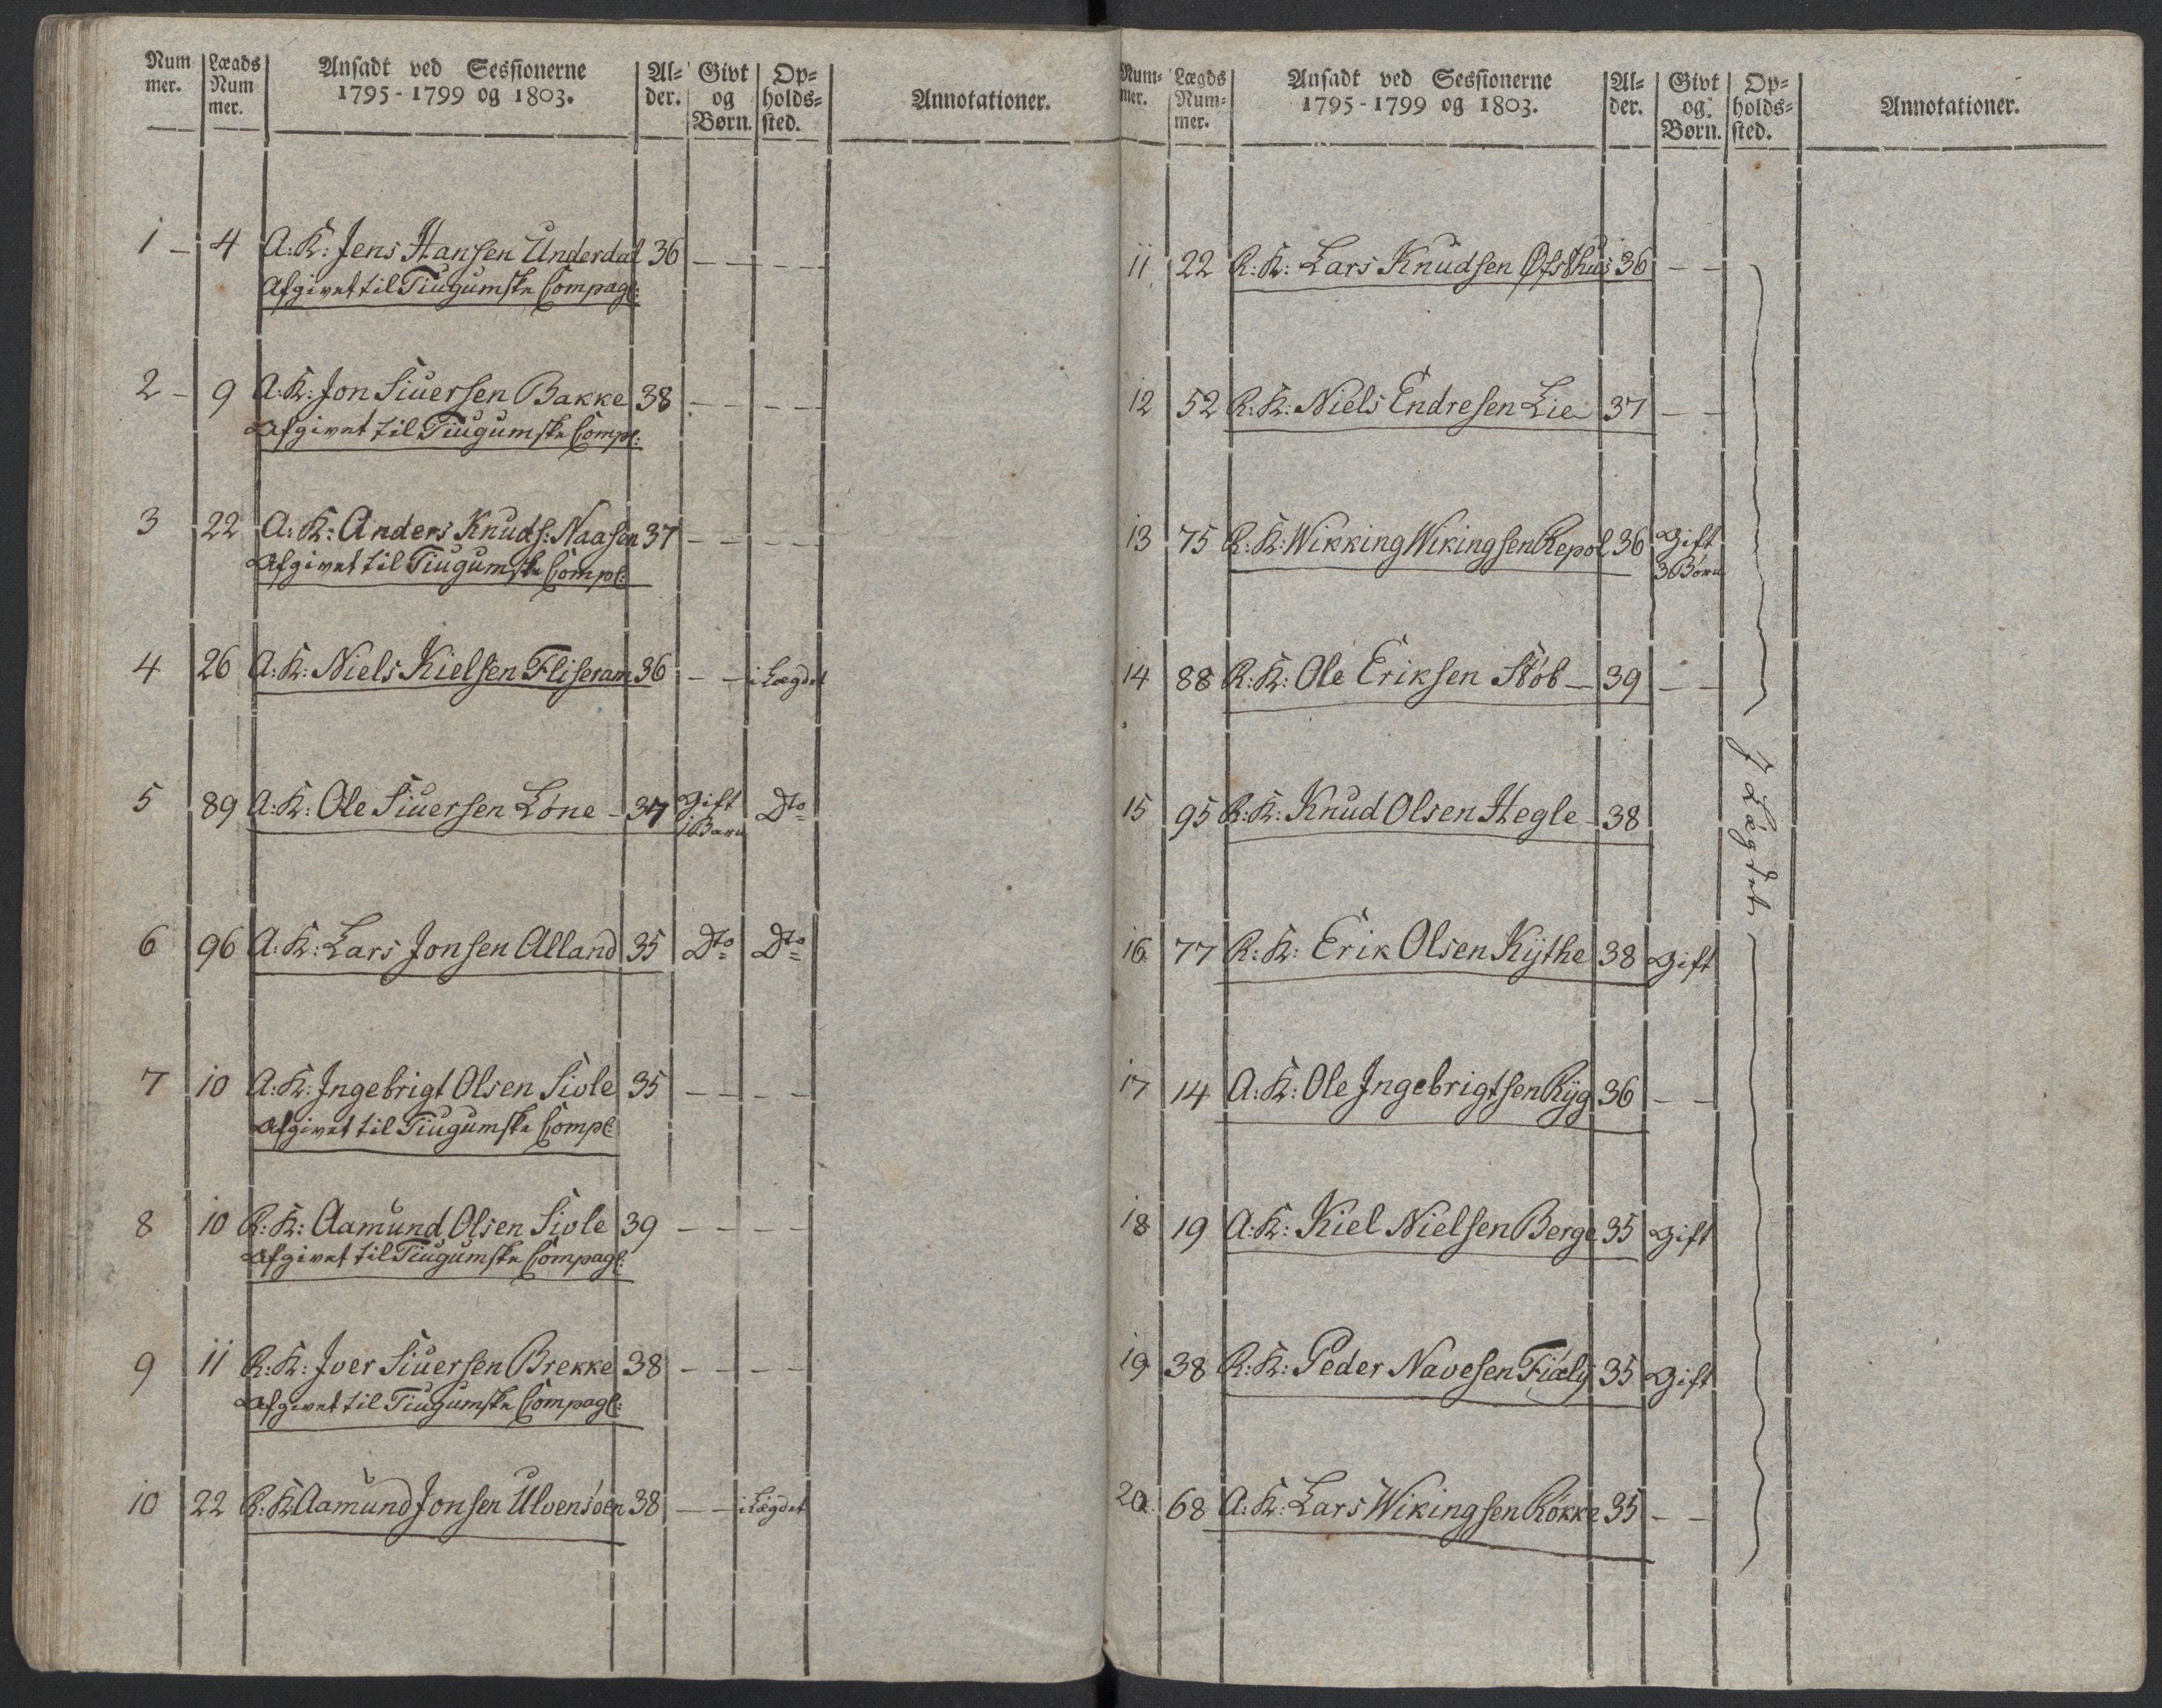 Num mer. Lægds Num mer. Ansadt ved Sessionerne 1795-1799 og 1803. Al= der. Givt og Børn. Op= holds= sted. Annotationer.
1 – 4 A:K: Jens Hansen Underdal 36 – – – –
Afgivet til Tiugumske Compag:
2 – 9 A:K: Jon Siuersen Bakke 38 – – – –
Afgivet til Tiugumske Comp:
3 22 A:K: Anders Knuds: Naasen 37 – – – –
Afgivet til Tiugumske Comp:
4 26 A:K: Niels Kielsen Fliseram 36 – – i Lægdet
5 89 A:K: Ole Siuersen Löne – 37 Gift Dto
1 Barn
6 96 A:K: Lars Jonsen Alland 35 Dto Dto
7 10 A:K: Ingebrigt Olsen Sivle 35 – – – –
Afgivet til Tiugumske Comp:
8 10 R:K: Aamund Olsen Sivle 39 – – – –
Afgivet til Tiugumske Compag:
9 11 R:K: Iver Siuersen Brekke 38 – – – –
Afgivet til Tiugumske Compag:
10 22 R:K: Aamund Jonsen Ulvensöen 38 – – i Lægdet
Num= mer. Lægds Num= mer. Ansadt ved Sessionerne 1795-1799 og 1803. Al= der. Givt og Børn. Op= holds= sted. Annotationer.
11 22 R:K: Lars Knudsen Øfsthus 36 – –
12 52 R:K: Niels Endresen Lie 37 – –
13 75 R:K: Wikking Wikingsen Repol 36 Gift
3 Børn
14 88 R:K: Ole Eriksen Stöb – 39 – –
I Lægdet
15 95 R:K: Knud Olsen Hegle – 38
16 77 R:K: Erik Olsen Kÿthe 38 Gift
17 14 A:K: Ole Ingebrigtsen Rÿg 36 – –
18 19 A:K: Kiel Nielsen Berge 35 Gift
19 38 R:K: Peder Navesen Fiælÿ 35 Gift
20 68 A:K: Lars Wikingsen Rökke 35 – –